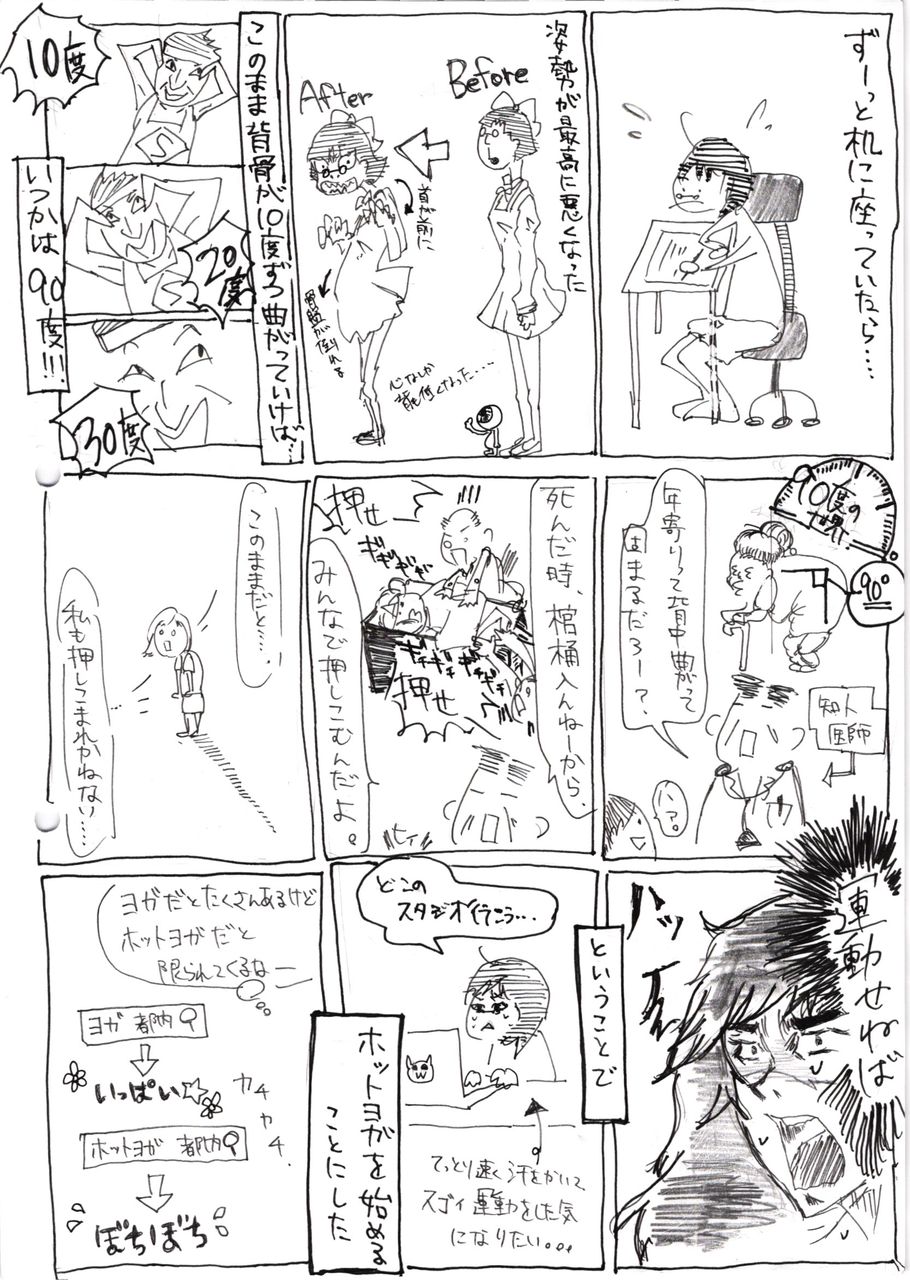 ずーっと机に座っていたら…
姿勢が最高に悪くなった
Before
After
首が前に
骨盤が倒れる
心なしか
背も低くなった……
このまま背骨が10度ずつ曲がっていけば…
10度
20度
30度
いつかは90度!!!
10度の
世界
90°
年寄りって背中曲がって
はまるだろー?
知人
医師
ハア。
死んだ時、棺桶入んねーから、
みんなで押しこむんだよ。
押せ
ギギギギギ
ギギギギ
押せ
ヒィ
このままだと…
私も押しこまれかねない…
運動せねば
ハッ
ということで
どこの
スタジオ行こう…
ホットヨガを始める
ことにした
てっとり速く汗をかいて
スゴイ運動をした気
になりたい…。
ヨガだとたくさんあるけど
ホットヨガだと
限られてくるなー
ヨガ 都内
いっぱい
カチャカチ
ホットヨガ 都内
ぼちぼち